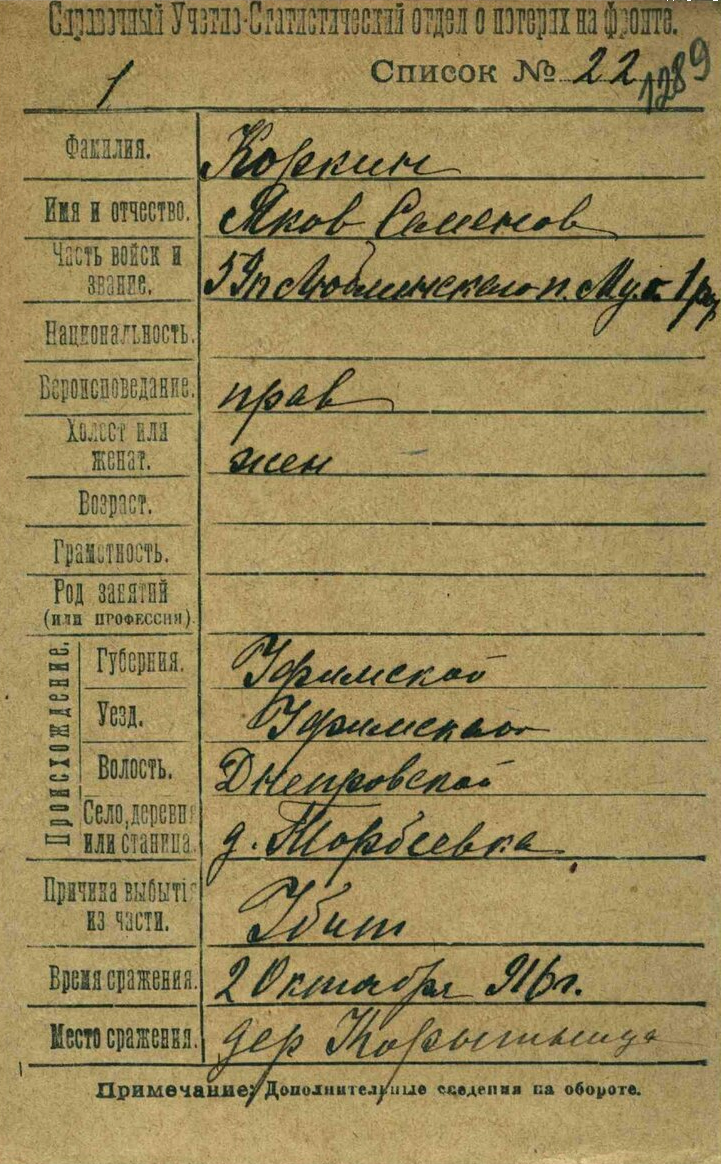 Справочный Учетно-Статистический отдел о потерях на фронте.
1 Список № 22 1289
Фамилия. Коркин
Имя и отчество. Яков Семенов
Часть войск и звание. 59п Люблинского п. Му.к 1 ру
Национальность.
Вероисповедание. прав
Холост или женат. жен
Возраст.
Грамотность.
Род занятий
(или профессия).
Происхождение.
Губерния. Уфимской
Уезд. Уфимского
Волость. Днепровской
Село, деревня или станица. д. Торбеевка
Причина выбытія из части. Убит
Время сражения. 2 Октября 916 г.
Место сражения. дер Корытница
Примечание: Дополнительные сведения на обороте.